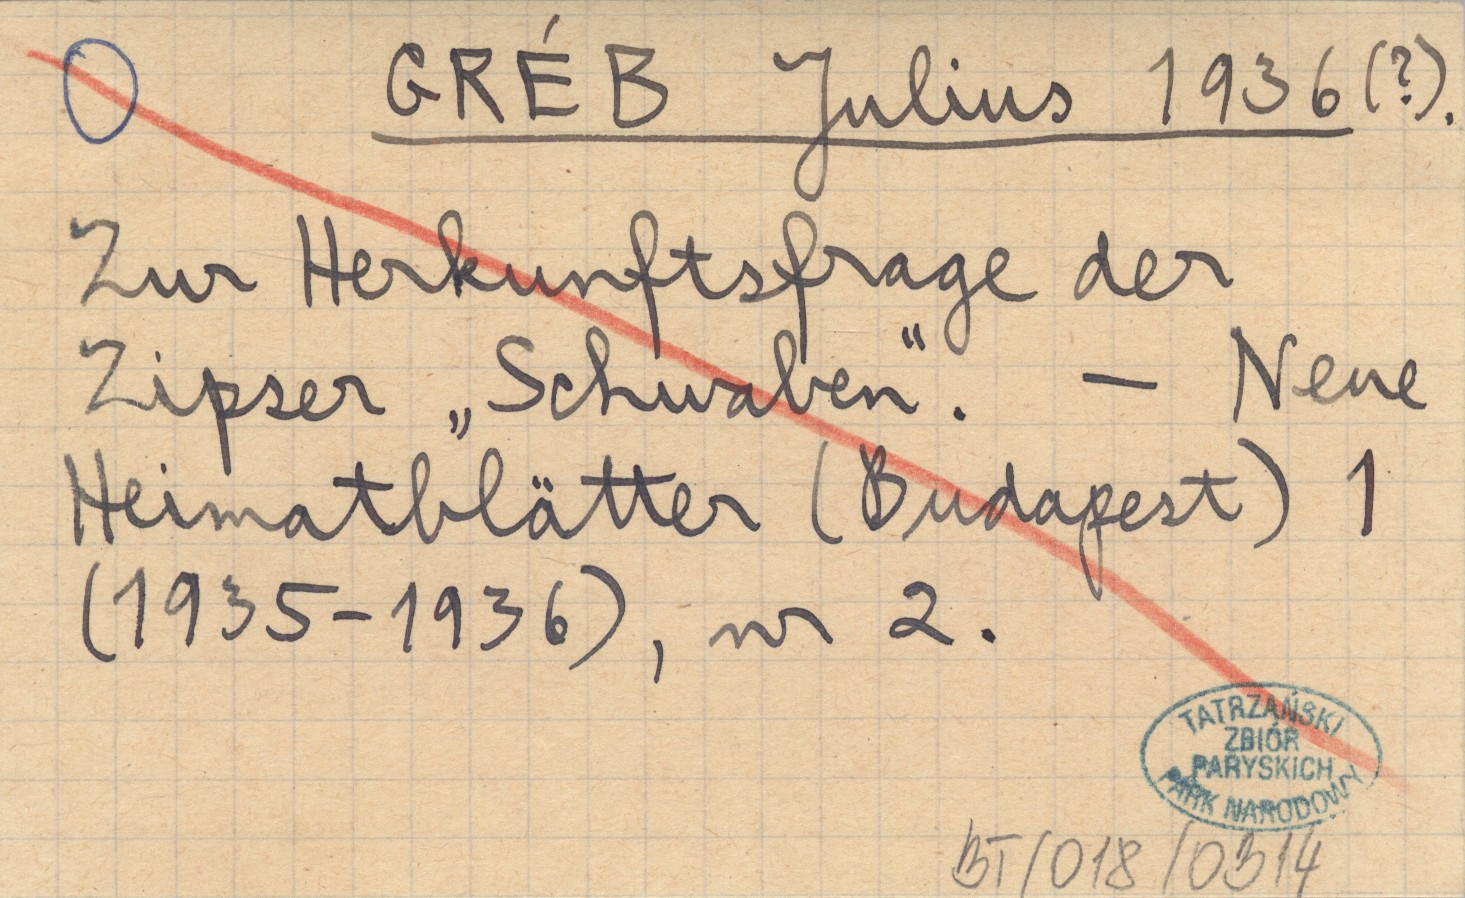 GRÉB Julius 1936(?).
Zur Herkunftsfrage der
Zipser „Schwaben“. — Neue
Heimatblätter (Budapest) 1
(1935-1936), nr 2.
TATRZAŃSKI
ZBIÓR
PARYSKICH
PARK NARODOWY
BT/018/0314